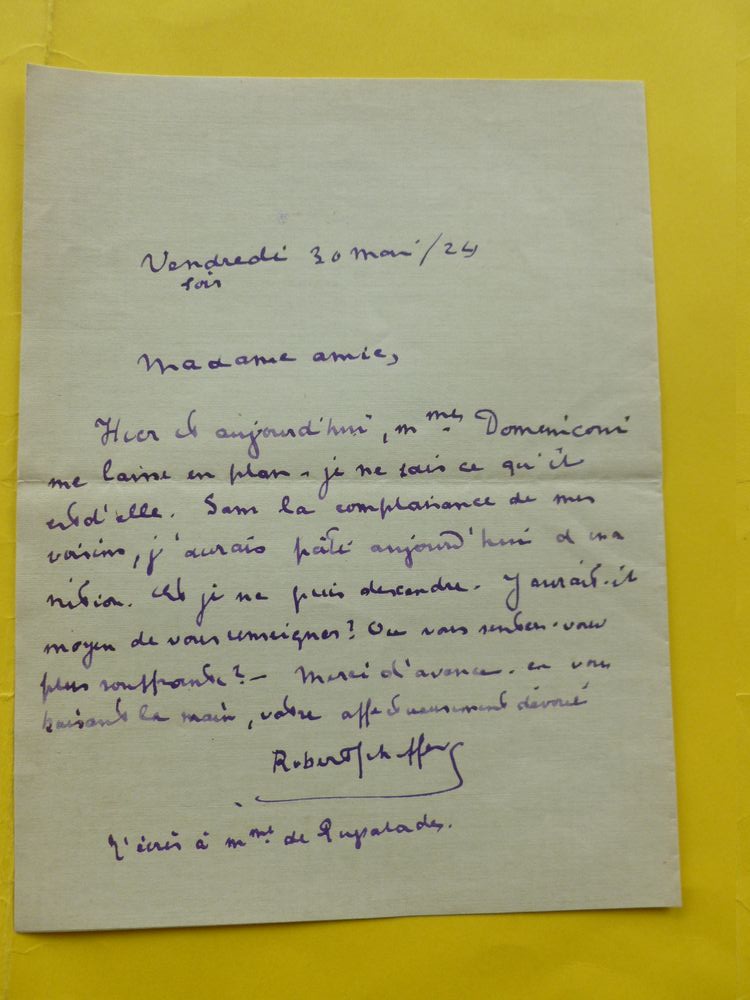 Vendredi 30 mai / 24
soir
Madame amie,
Hier et aujourd'hui, Mme Domeniconi
me laisse en plan - je ne sais ce qu'il
est d'elle. Sans la complaisance de mes
voisins, j'aurais pâti aujourd'hui d'ina
nition. Et je ne puis descendre. Y aurait-il
moyen de vous renseigner? Ou vous sentez-vous
plus souffrante? - Merci d'avance. en vous
baisant la main, votre affectueusement dévoué
Robert Scheffer
J'écris à Mme de